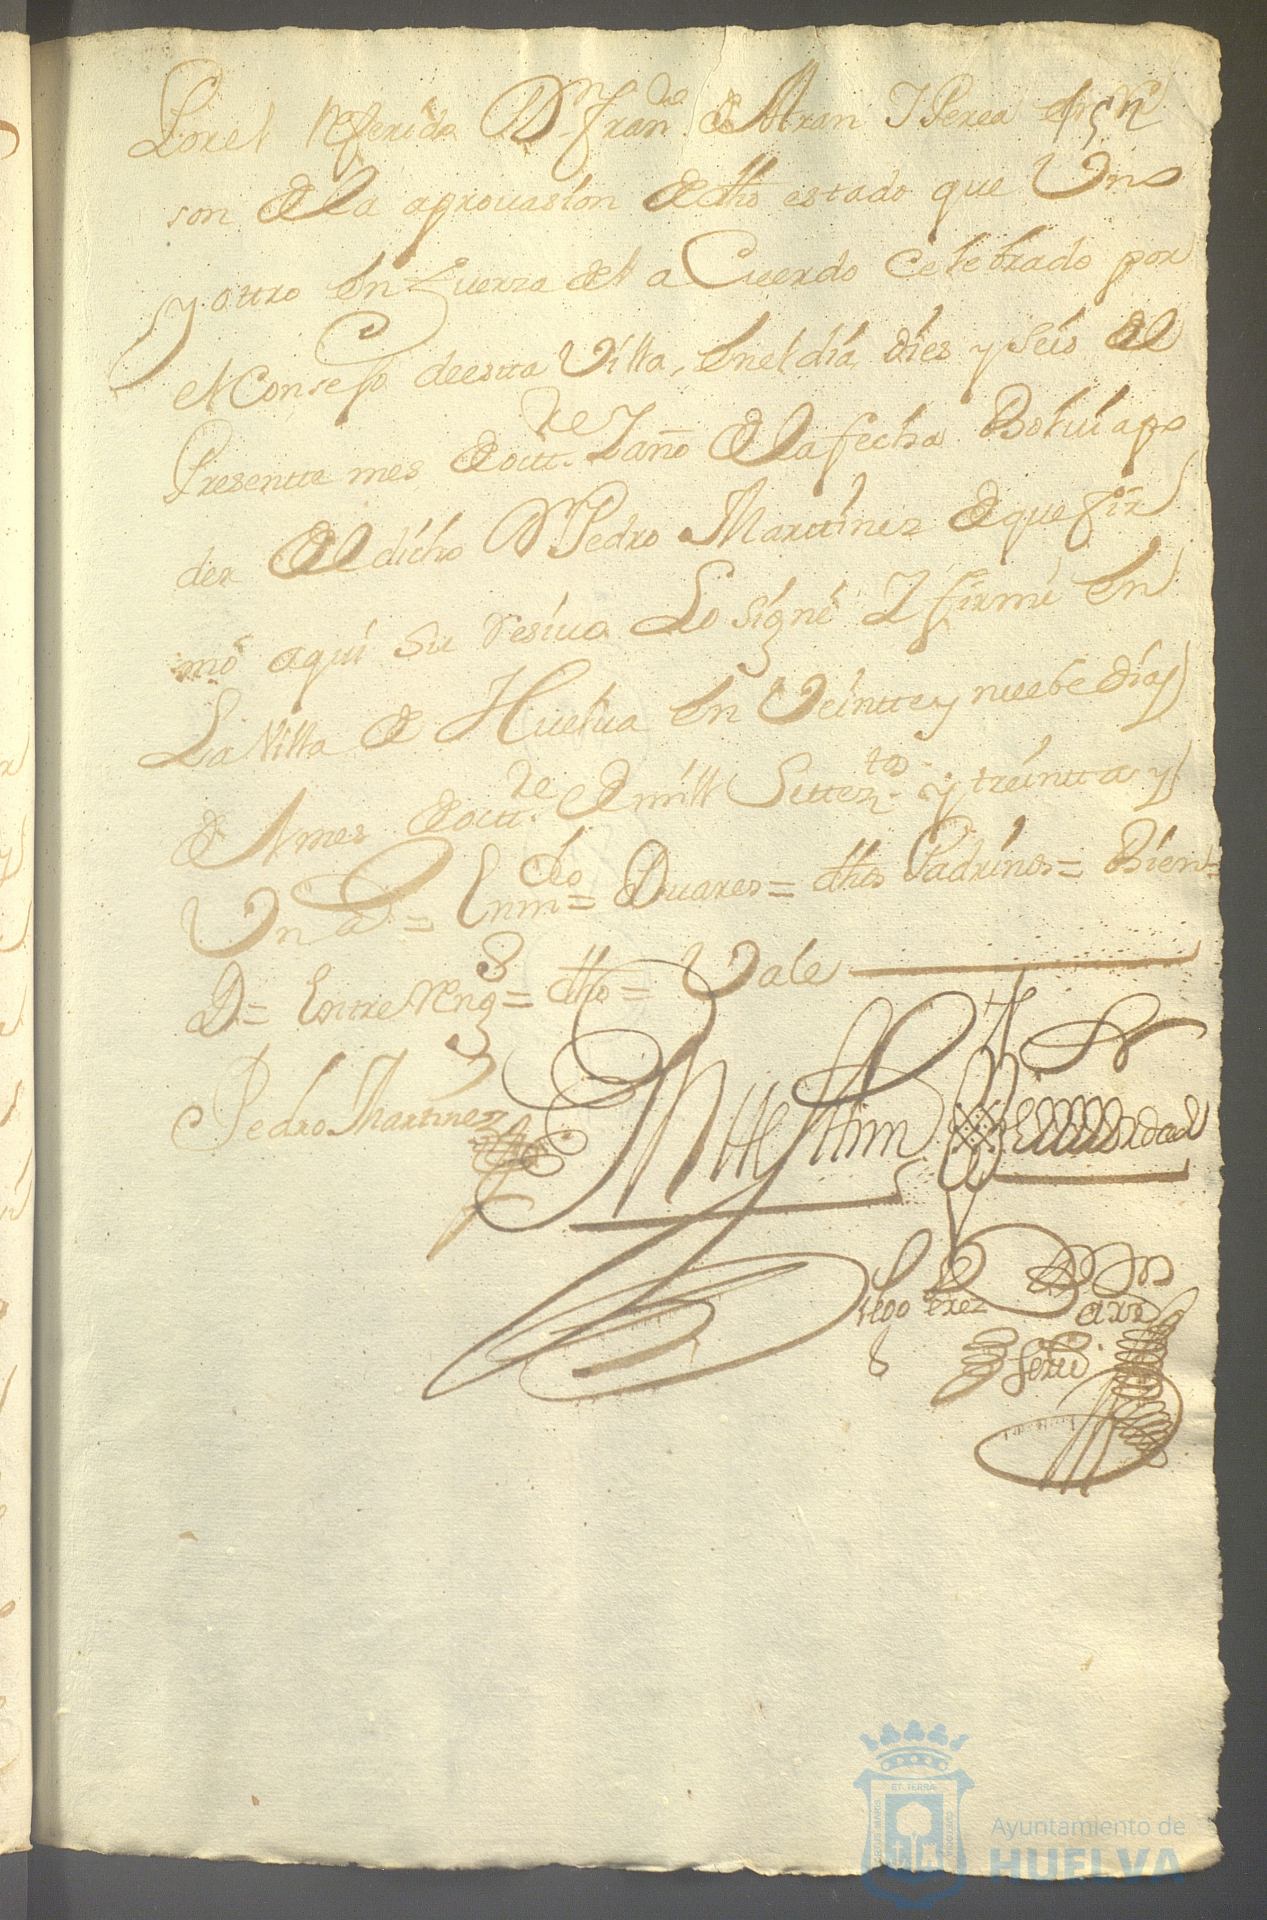 Por el Referido Dn. Franco. de Alran Y Perea en Rª
son de la aprouasion de dho estado que Uno
y ottro en fuerza del aCuerdo Celebrado por
el Consejo de estta Villa, en el dia dies y seis del
Presentte mes de octtre. Y año de la fecha Bolui a po
der del dicho Dn Pedro Marttinez de que fir
mó aqui su resiuo Lo signé Y firmé en
La Villa de Huelua en Veintte y nuebe dias
del mes de octtre. de mill Settezntos. y treintta y
Un as = Enmdo = Duares = dhos Padrinos = Bien=
D= Entre Reng= dho = Vale
Pedro Martinez
En testim de Verdad
Diego Perez Barr
Seru.
ET TERRA
Ayuntamiento de
HUELVA